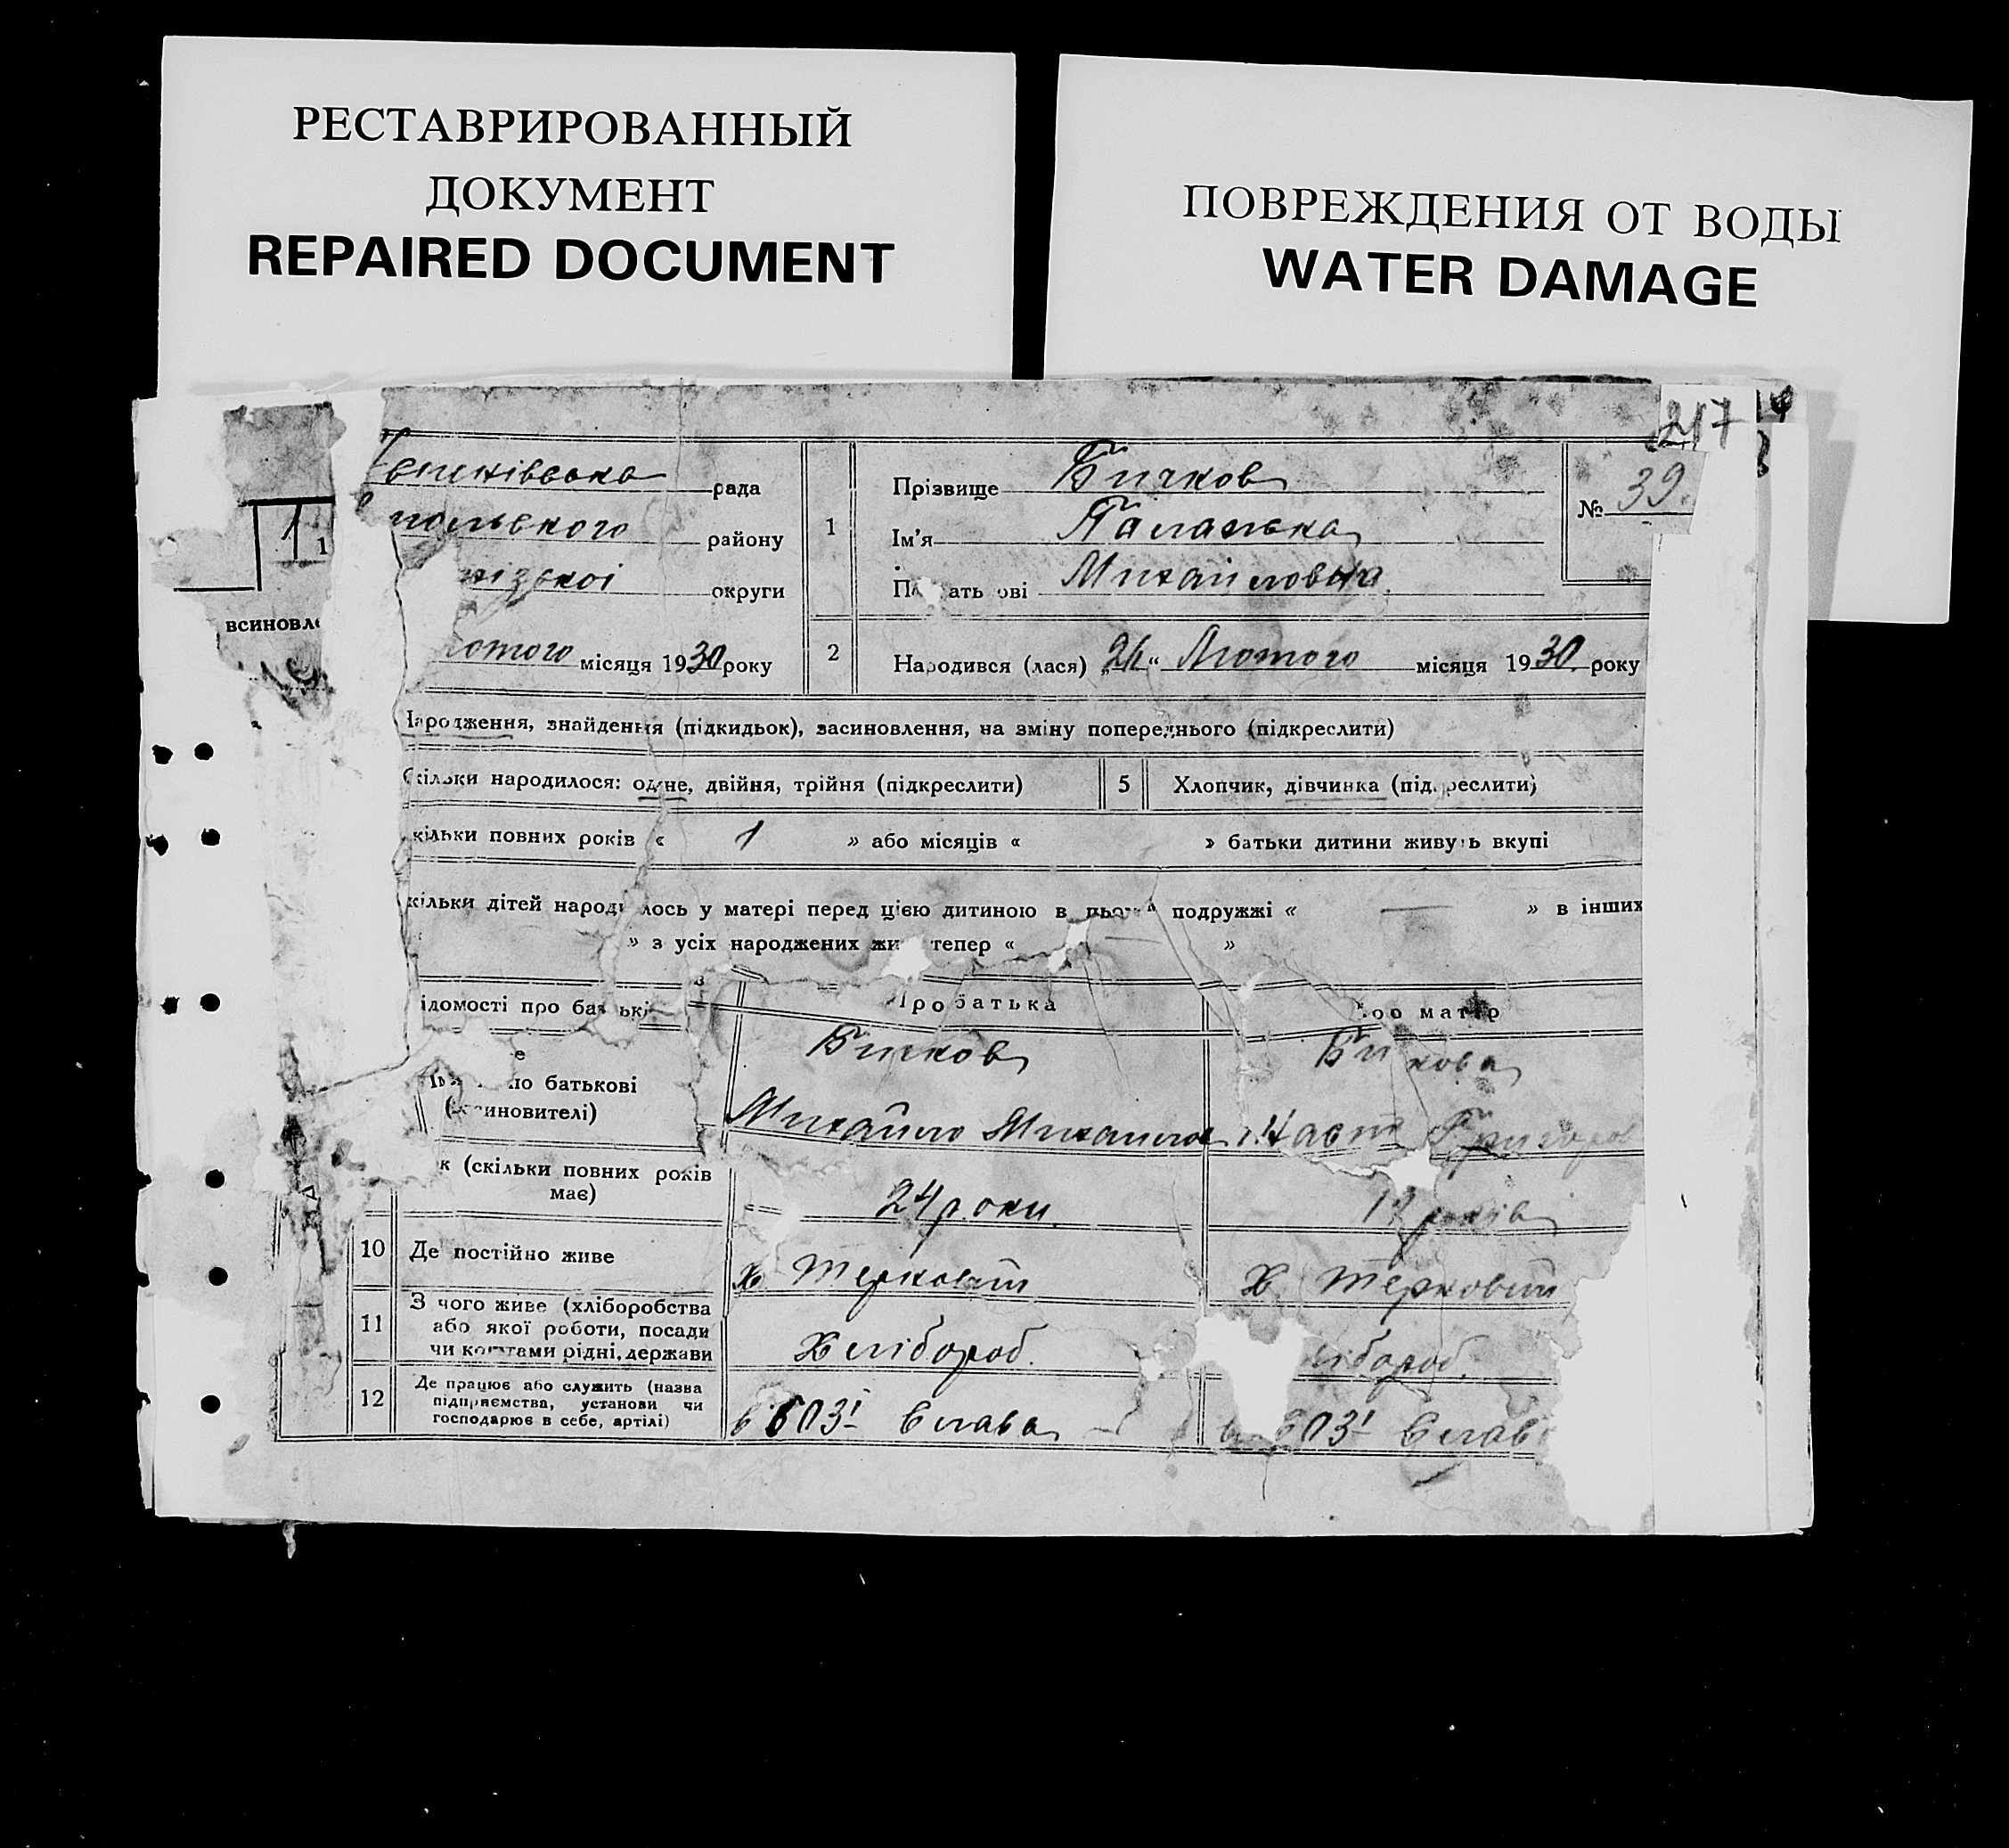 РЕСТАВРИРОВАННЫЙ
ДОКУМЕНТ
REPAIRED DOCUMENT
ПОВРЕЖДЕНИЯ ОТ ВОДЫ
WATER DAMAGE
217
рада
району
округи
місяця 1930 року
1
Прізвище Бичков
Ім'я Палажка
Михайловна
№ 39
2
Народився (лася) „26“ Лютого місяця 1930 року
Народження, знайдення (підкидьок), засиновлення, на зміну попереднього (підкреслити)
Скільки народилося: одне, двійня, трійня (підкреслити)
5
Хлопчик, дівчинка (підкреслити)
кільки повних років « 1 » або місяців « » батьки дитини живуть вкупі
кільки дітей народилось у матері перед цією дитиною в цьому подружжі « — » в інших
» з усіх народжених тепер « — »
ідомості про батьків
Про батька
матір
по батькові
Бичков
Михайло
к (скільки повних років має)
24 роки
років
10
Де постійно живе
х Терновий
х Терновий
11
З чого живе (хліборобства
або якої роботи, посади
чи коштами рідні, держави
Хлібороб.
ібороб.
12
Де працює або служить (назва
підприємства, установи чи
господарює в себе, артілі)
в СОЗІ Слава
СОЗІ Слав
всиновл